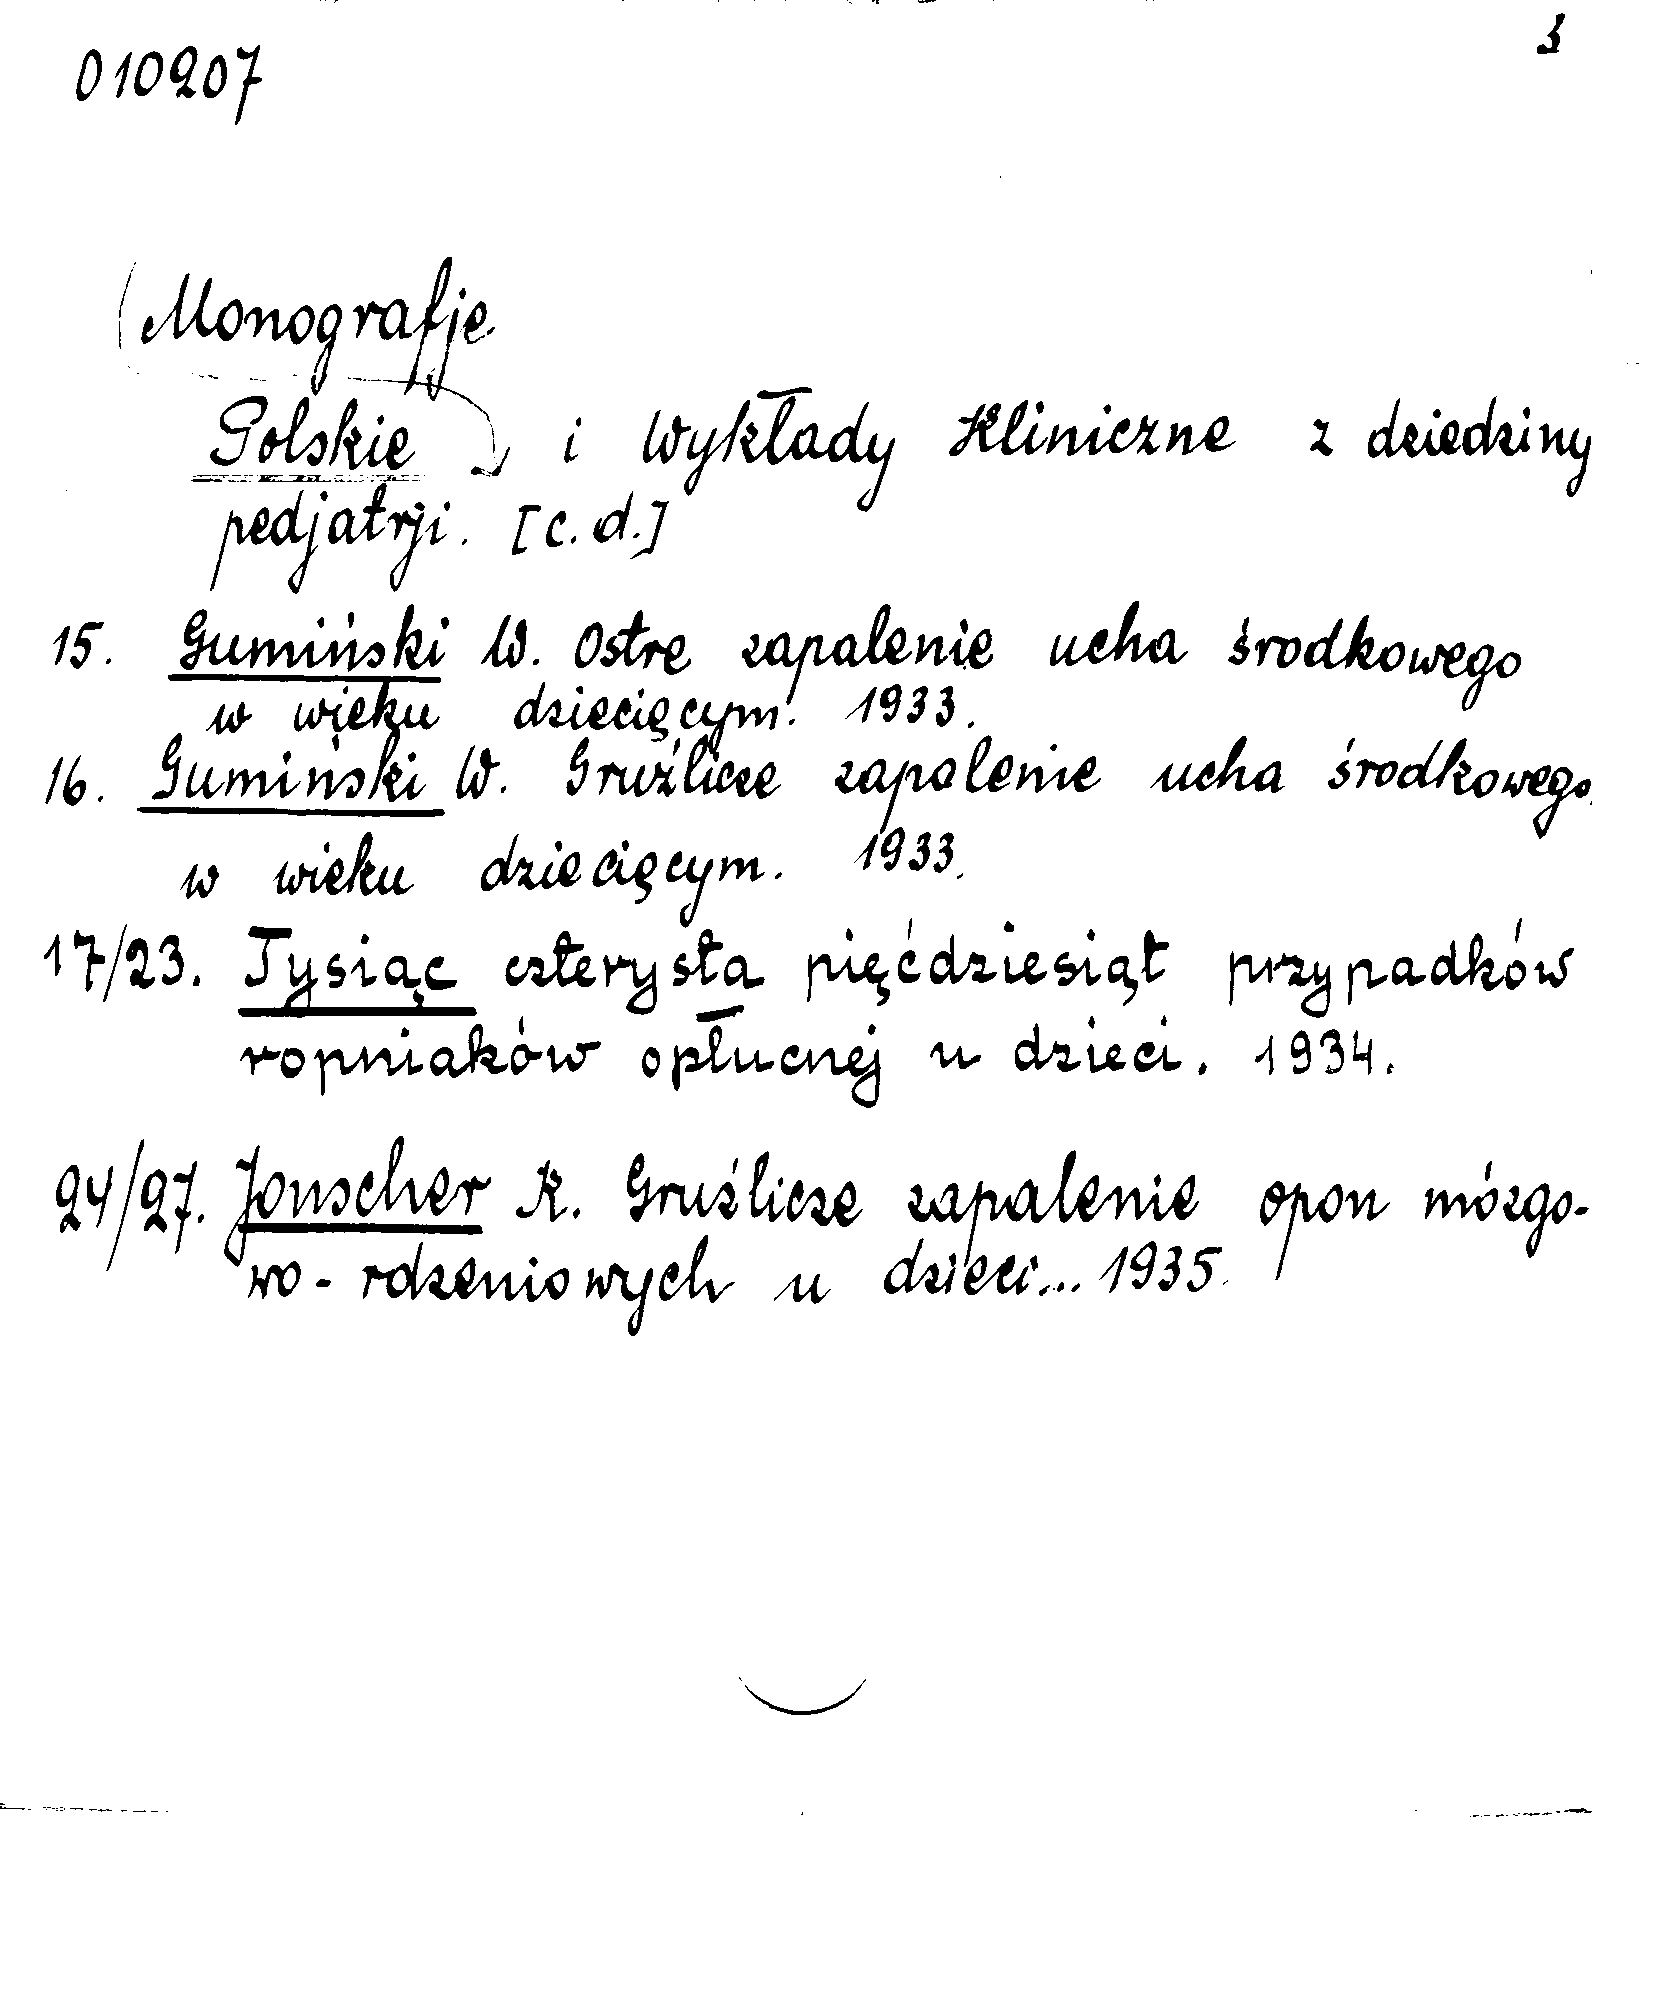 3
010207
Monografje
Polskie i Wykłady Kliniczne z dziedziny
pedjatrji. [c.d.]
15. Gumiński W. Ostre zapalenie ucha środkowego
w wieku dziecięcym. 1933.
16. Gumiński W. Gruźlicze zapalenie ucha środkowego
w wieku dziecięcym. 1933.
17/23. Tysiąc czterysta pięćdziesiąt przypadków
ropniaków opłucnej u dzieci. 1934.
24/27. Jonscher K. Gruźlicze zapalenie opon mózgo-
wo-rdzeniowych u dzieci... 1935.